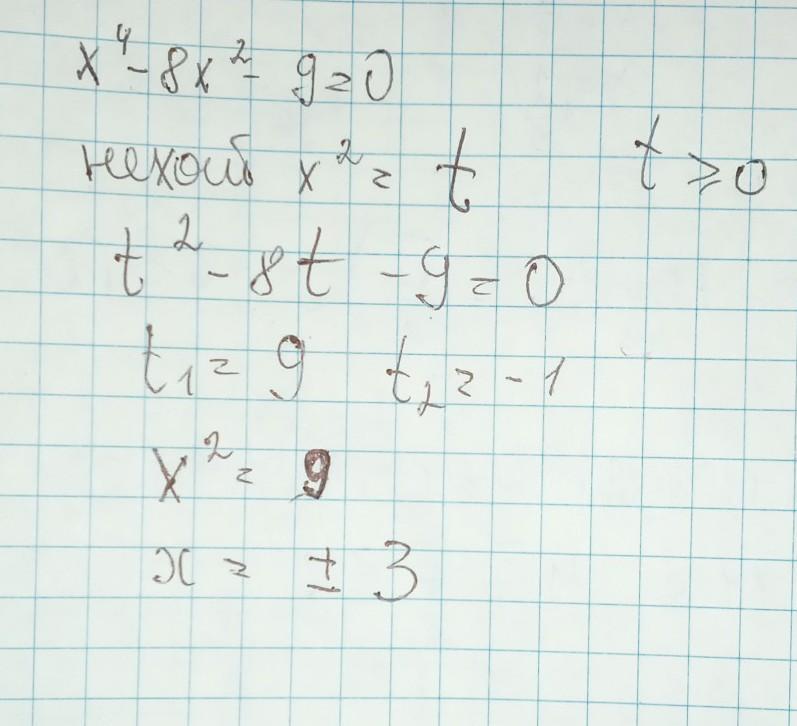 x⁴ - 8x² - 9 = 0
нехай x² = t t ≥ 0
t² - 8t - 9 = 0
t₁ = 9 t₂ = -1
x² = 9
x = ± 3